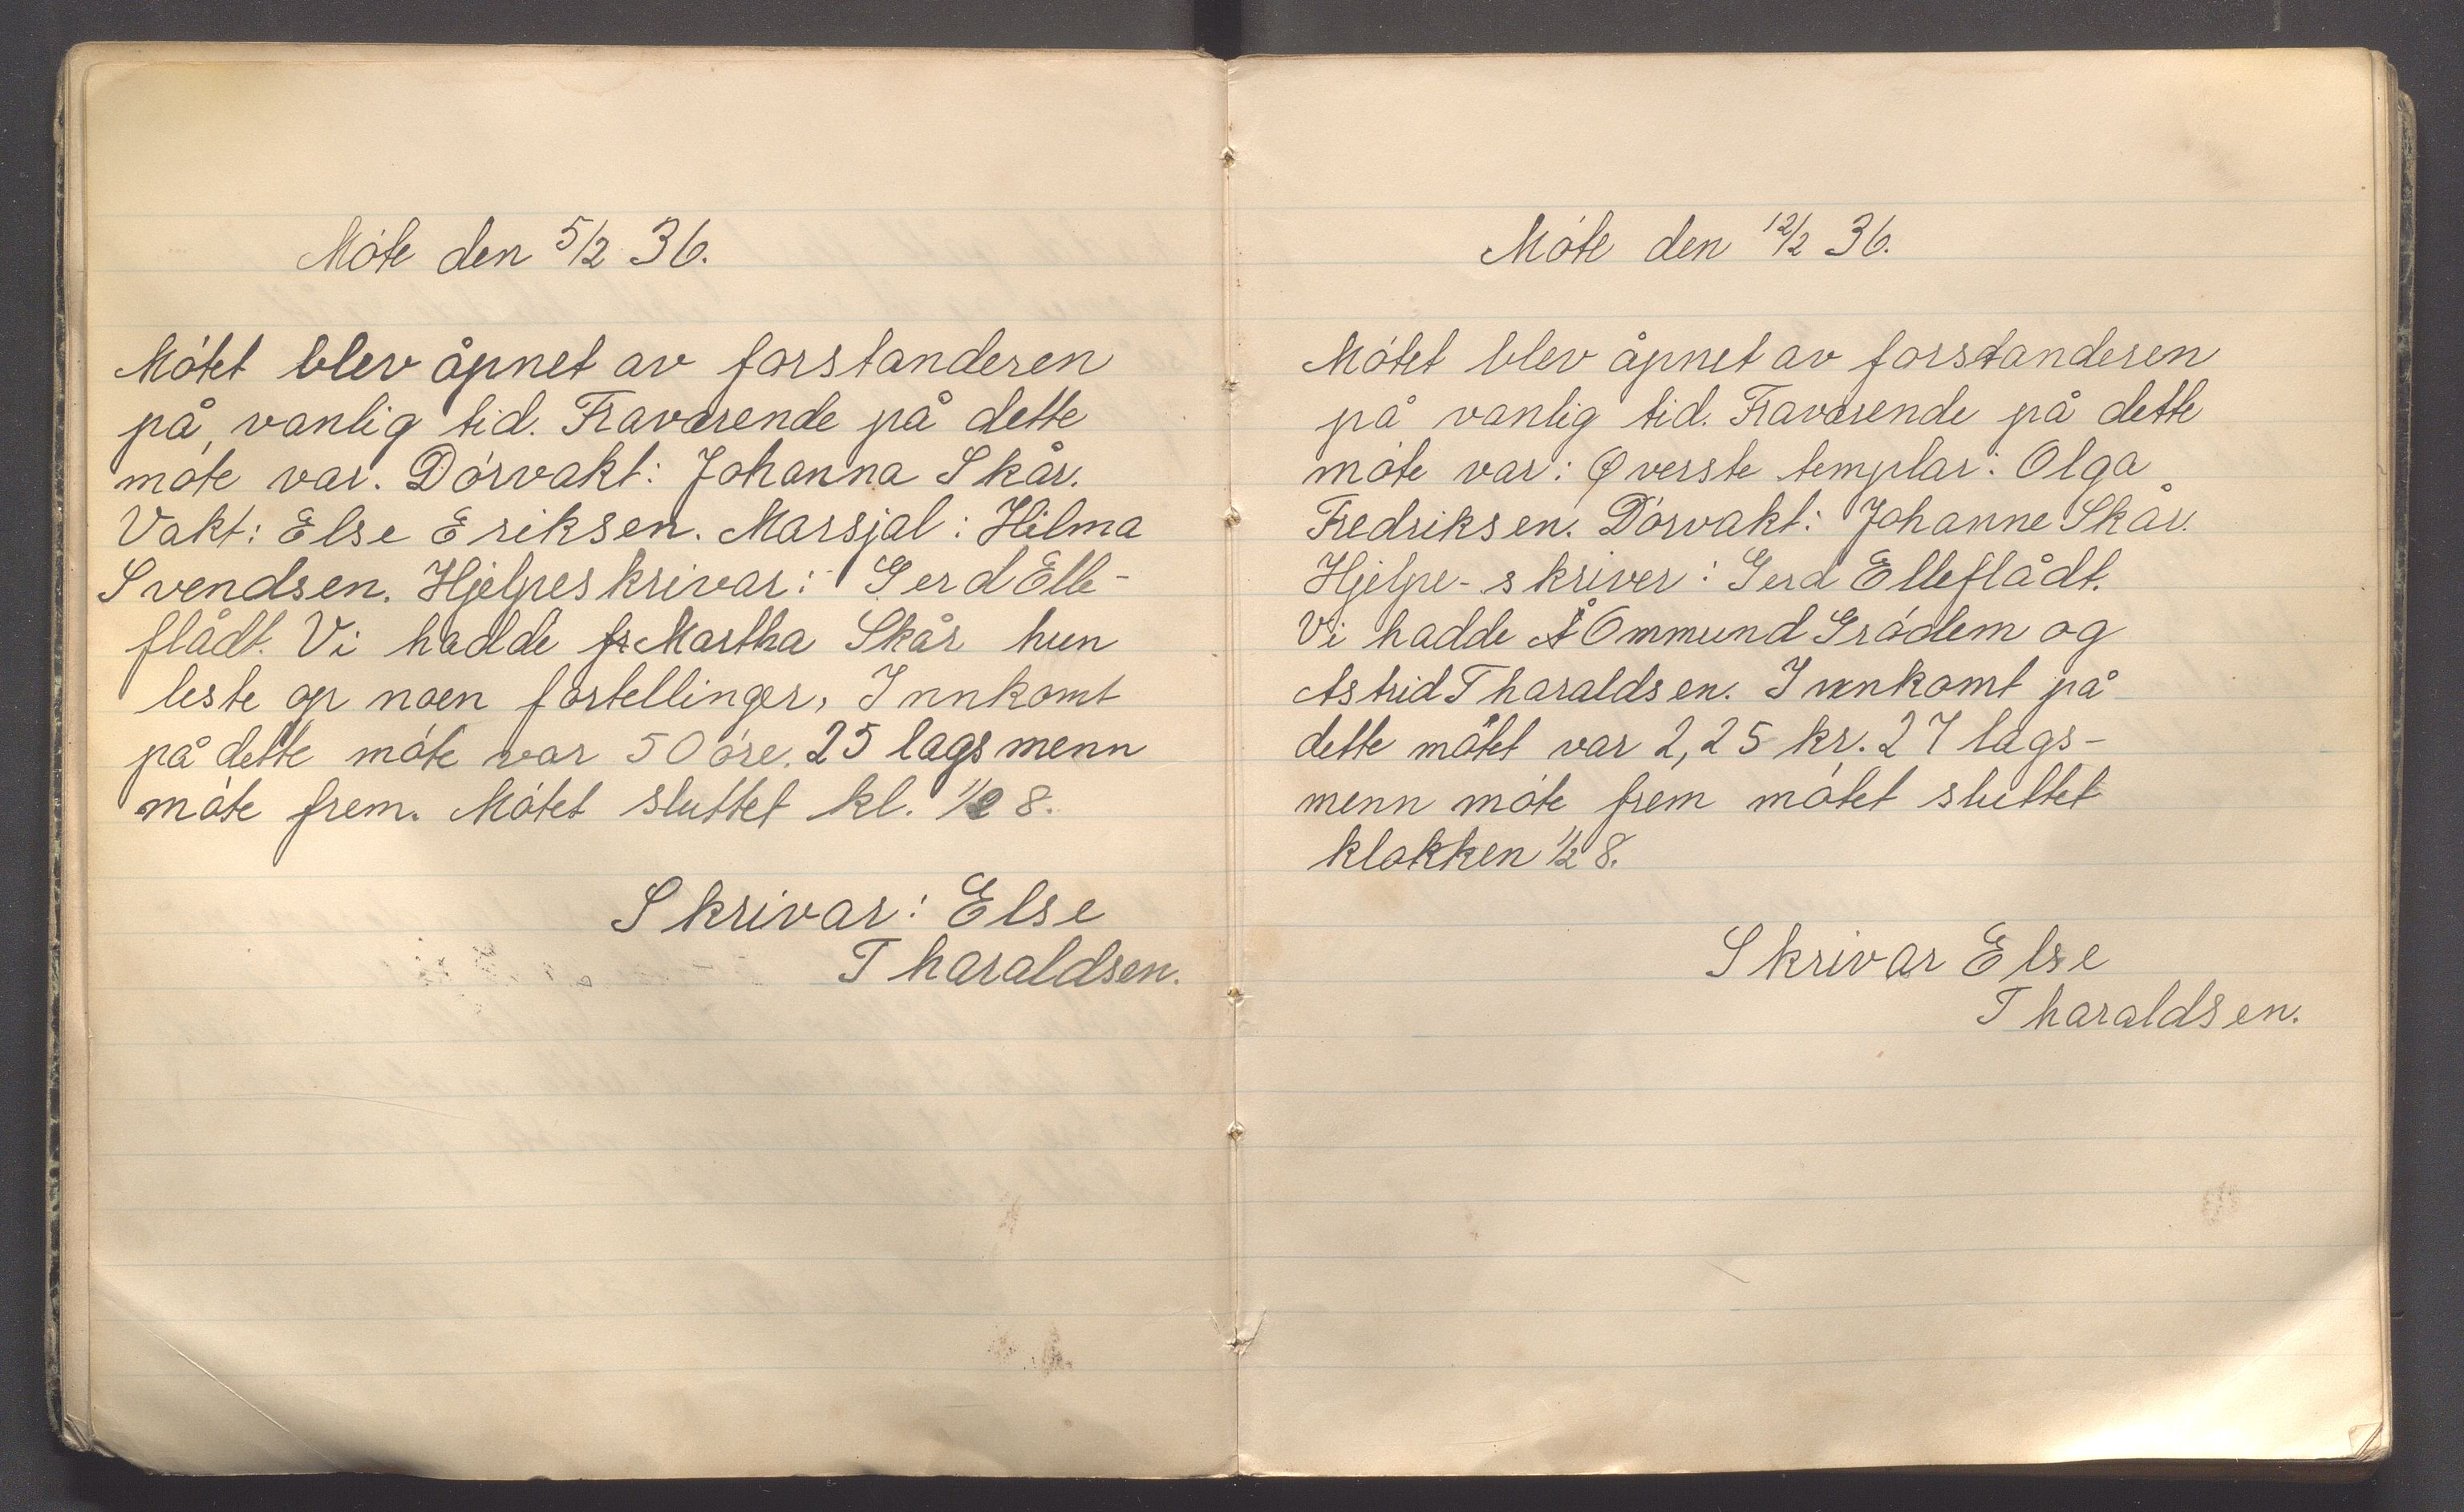 Móte den 5/2 36.
Mótet blev åpnet av forstanderen
på vanlig tid. Fraværende på dette
móte var. Dórvakt: Johanna Skår.
Vakt: Else Eriksen. Marsjal: Hilma
Svendsen. Hjelpeskrivar: Gerd Elle-
flådt. Vi hadde fr Martha Skår hun
leste op noen fortellinger, Innkomt
på dette móte var 50 óre. 25 lagsmenn
móte frem. Mótet sluttet kl. 1/2 8.
Skrivar: Else
Tharaldsen.
Móte den 12/2 36.
Mótet blev åpnet av forstanderen
på vanlig tid. Fraværende på dette
móte var: Øverste templar: Olga
Fredriksen. Dórvakt: Johanne Skår.
Hjelpe-skriver: Gerd Elleflådt.
Vi hadde Å Ommund Gródem og
Astrid Tharaldsen. Innkomt på
dette mótet var 2,25 kr. 27 lags-
menn móte frem mótet sluttet
klokken 1/2 8.
Skrivar Else
Tharaldsen.